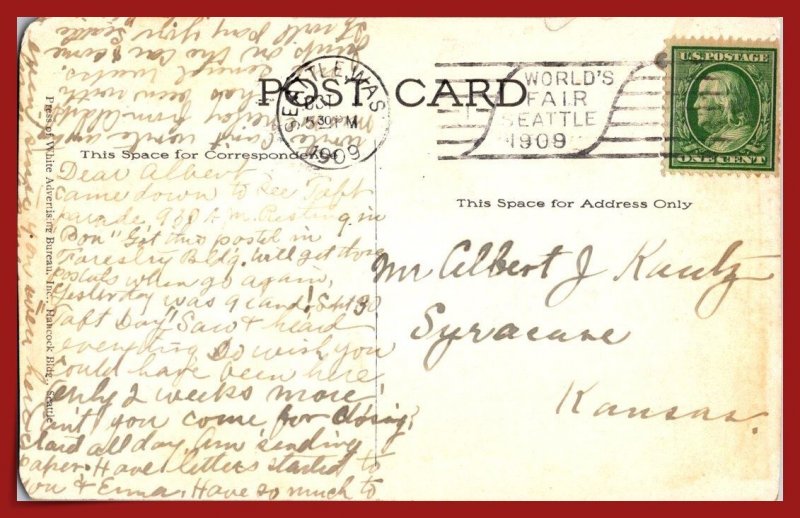 POST CARD
SEATTLE, WASH.
OCT
5 30 PM
1909
WORLD'S
FAIR
SEATTLE
1909
U.S. POSTAGE
ONE CENT
This Space for Correspondence
This Space for Address Only
Press of White Advertising Bureau, Inc., Hancock Bldg., Seattle
Dear Albert:
came down to see Taft
parade 930 A.M. Resting in
"Bon" Get this postal in
Forestry Bldg. Will get those
postals when go again.
Yesterday was grand! Sept 30
Taft Day! Saw & heard
everything Do wish you
could have been here
Only 2 weeks more!
Can't you come for closing?
Staid all day. Am sending
paper. Have letters started to
you & Erma. Have so much to
Mr Albert J Kautz
Syracuse
Kansas.